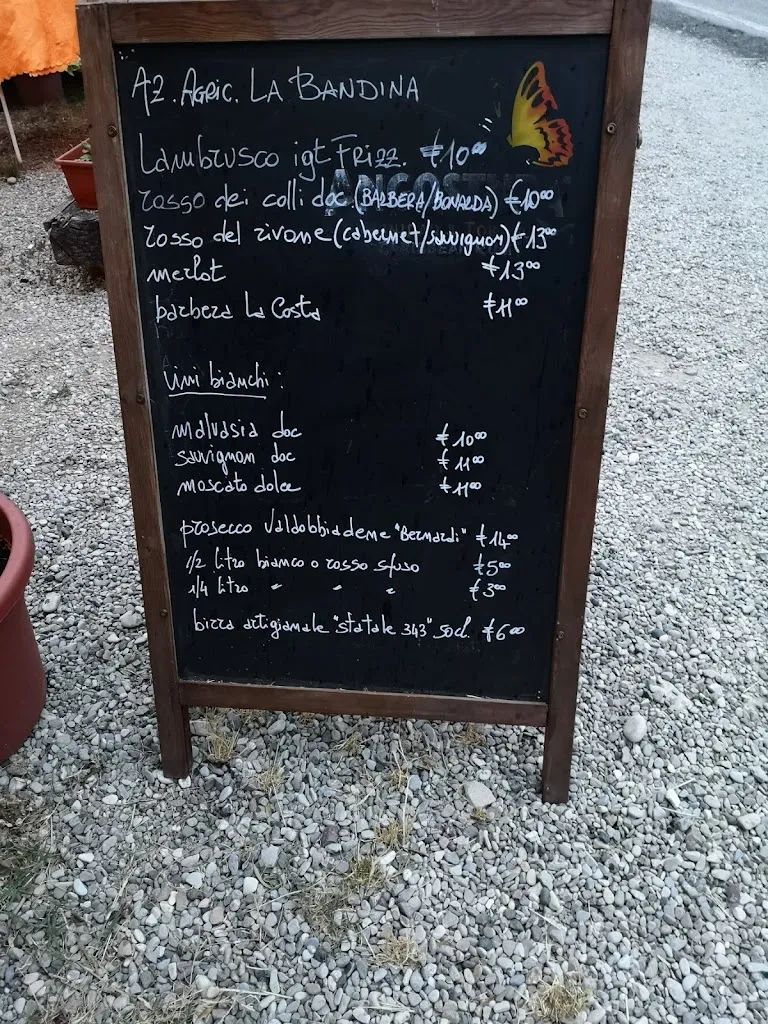 AZ. AGRIC. LA BANDINA
Lambrusco igt FRIZZ. €10⁰⁰
rosso dei colli doc (BARBERA/BONARDA) €10⁰⁰
rosso del rivone (cabernet/sauvignon) €13⁰⁰
merlot €13⁰⁰
barbera La Costa €11⁰⁰
Vini bianchi:
malvasia doc €10⁰⁰
sauvignon doc €11⁰⁰
moscato dolce €11⁰⁰
prosecco Valdobbiadene "Bernardi" €14⁰⁰
1/2 litro bianco o rosso sfuso €5⁰⁰
1/4 litro " " " €3⁰⁰
birra artigianale "statale 343" 50cl. €6⁰⁰